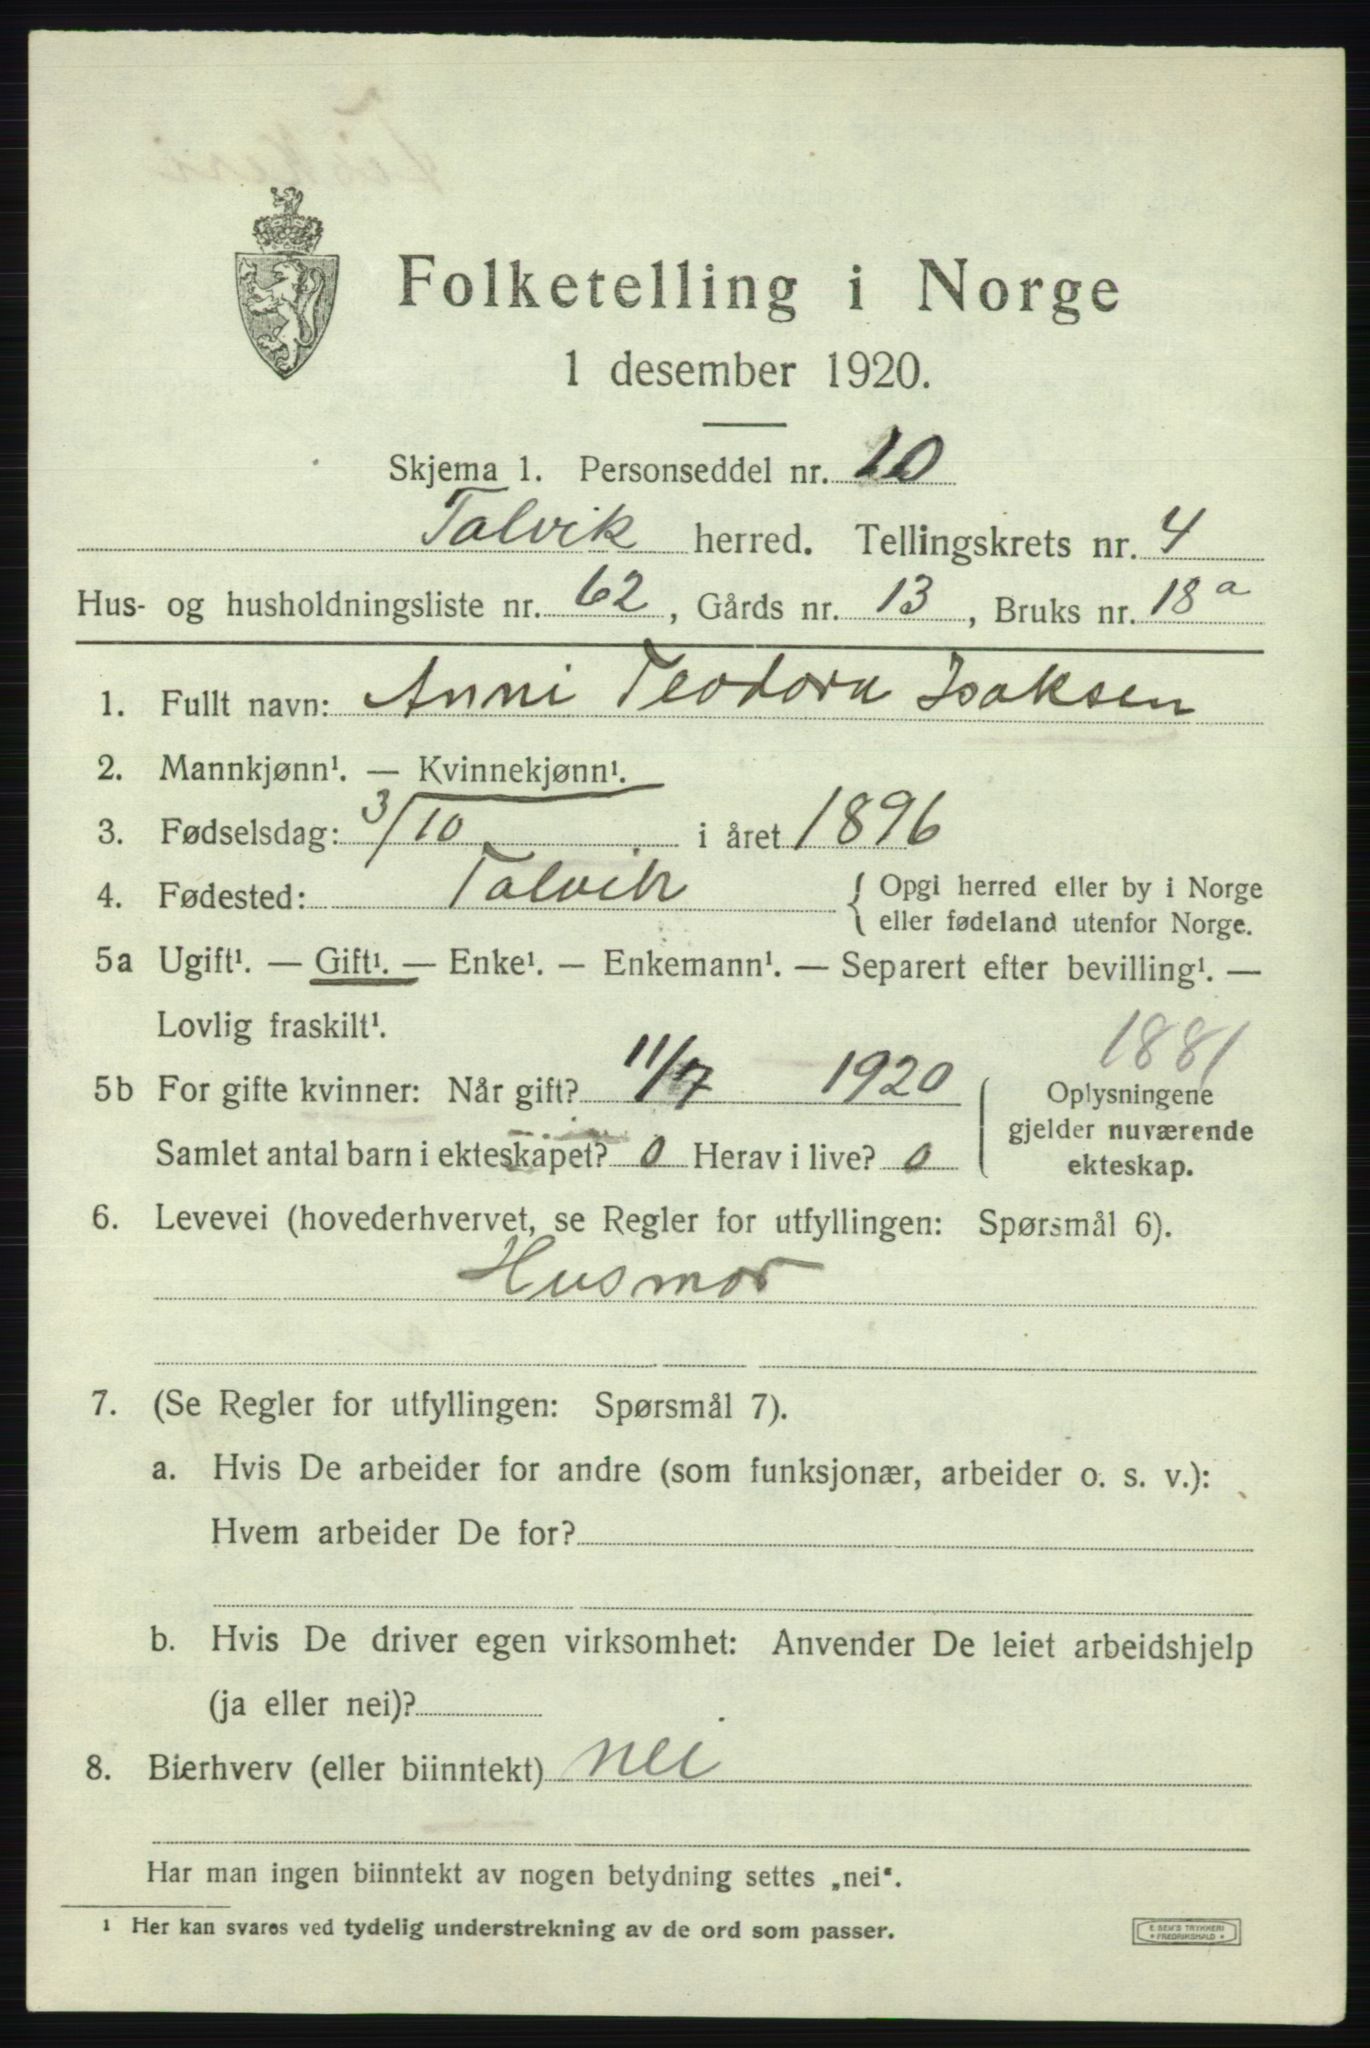 Folketelling i Norge
1 desember 1920.
Skjema 1. Personseddel nr. 10
Talvik herred. Tellingskrets nr. 4
Hus- og husholdningsliste nr. 62, Gårds nr. 13, Bruks nr. 18a
1. Fullt navn: Anni Teodora Isaksen
2. Mannkjønn¹. — Kvinnekjønn¹.
3. Fødselsdag: 3/10 i året 1896
4. Fødested: Talvik { Opgi herred eller by i Norge
eller fødeland utenfor Norge.
5a Ugift¹. — Gift¹. — Enke¹. — Enkemann¹. — Separert efter bevilling¹. —
Lovlig fraskilt¹.
1881
5b For gifte kvinner: Når gift? 11/7 1920
Samlet antal barn i ekteskapet? 0 Herav i live? 0
Oplysningene
gjelder nuværende
ekteskap.
6. Levevei (hovederhvervet, se Regler for utfyllingen: Spørsmål 6).
Husmor
7. (Se Regler for utfyllingen: Spørsmål 7).
a. Hvis De arbeider for andre (som funksjonær, arbeider o. s. v.):
Hvem arbeider De for?
b. Hvis De driver egen virksomhet: Anvender De leiet arbeidshjelp
(ja eller nei)?
8. Bierhverv (eller biinntekt) nei
Har man ingen biinntekt av nogen betydning settes „nei“.
¹ Her kan svares ved tydelig understrekning av de ord som passer.
E. SEM'S TRYKKERI
* FREDRIKSHALD *